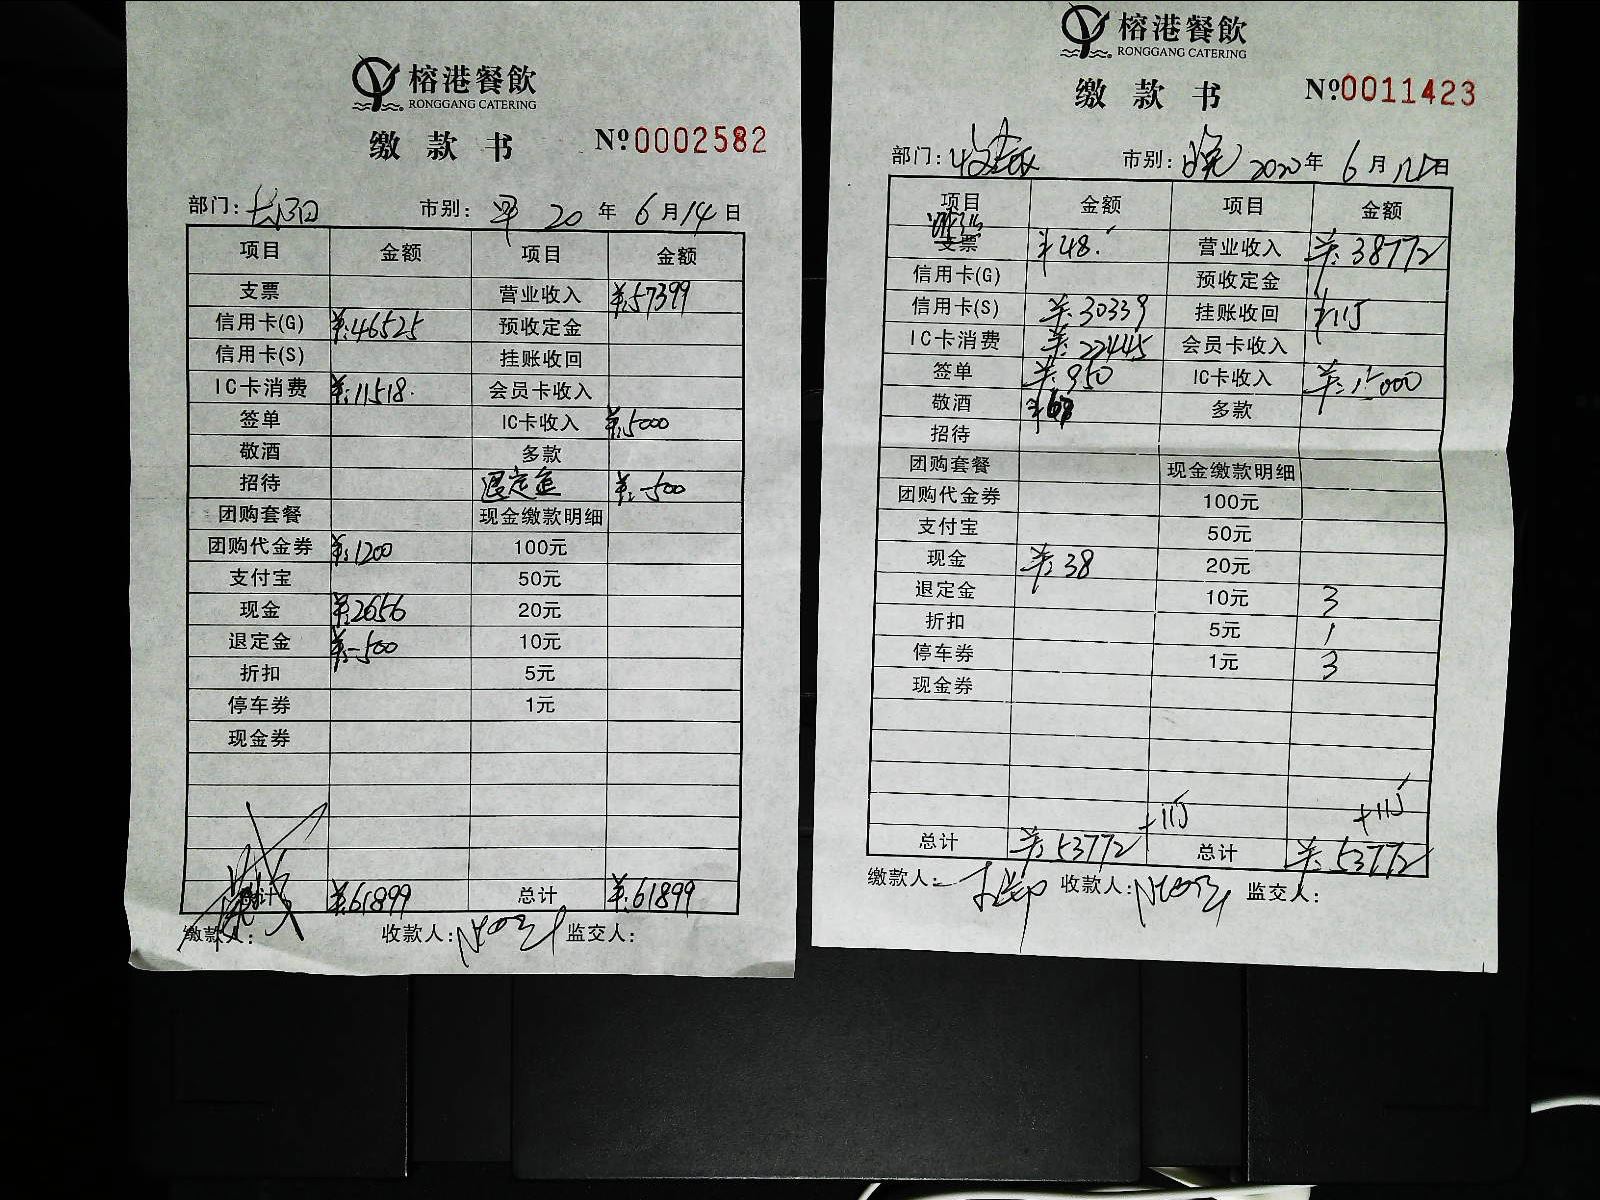 榕港餐飲
RONGGANG CATERING
缴款书
Nº0002582
部门: 市别: 早 20 年 6 月 14 日
项目 金额 项目 金额
支票 营业收入 ¥:57399
信用卡(G) ¥:46525 预收定金
信用卡(S) 挂账收回
IC卡消费 ¥:11518. 会员卡收入
签单 IC卡收入 ¥:5000
敬酒 多款
招待 退定金 ¥:-500
团购套餐 现金缴款明细
团购代金券 ¥:1200 100元
支付宝 50元
现金 ¥:2656 20元
退定金 ¥:-500 10元
折扣 5元
停车券 1元
现金券
总计 ¥:61899 总计 ¥:61899
缴款人: 收款人: 监交人:
榕港餐飲
RONGGANG CATERING
缴款书
Nº0011423
部门: 市别: 晚 2020 年 6 月 日
项目 金额 项目 金额
支票 ¥48. 营业收入 ¥:38772
信用卡(G) 预收定金
信用卡(S) ¥:30339 挂账收回 +115
IC卡消费 ¥:22445 会员卡收入
签单 ¥:950 IC卡收入 ¥:15000
敬酒 ¥68 多款
招待
团购套餐 现金缴款明细
团购代金券 100元
支付宝 50元
现金 ¥:38 20元
退定金 10元 3
折扣 5元 1
停车券 1元 3
现金券
+115 +115
总计 ¥:53772 总计 ¥:53772
缴款人: 收款人: 监交人: